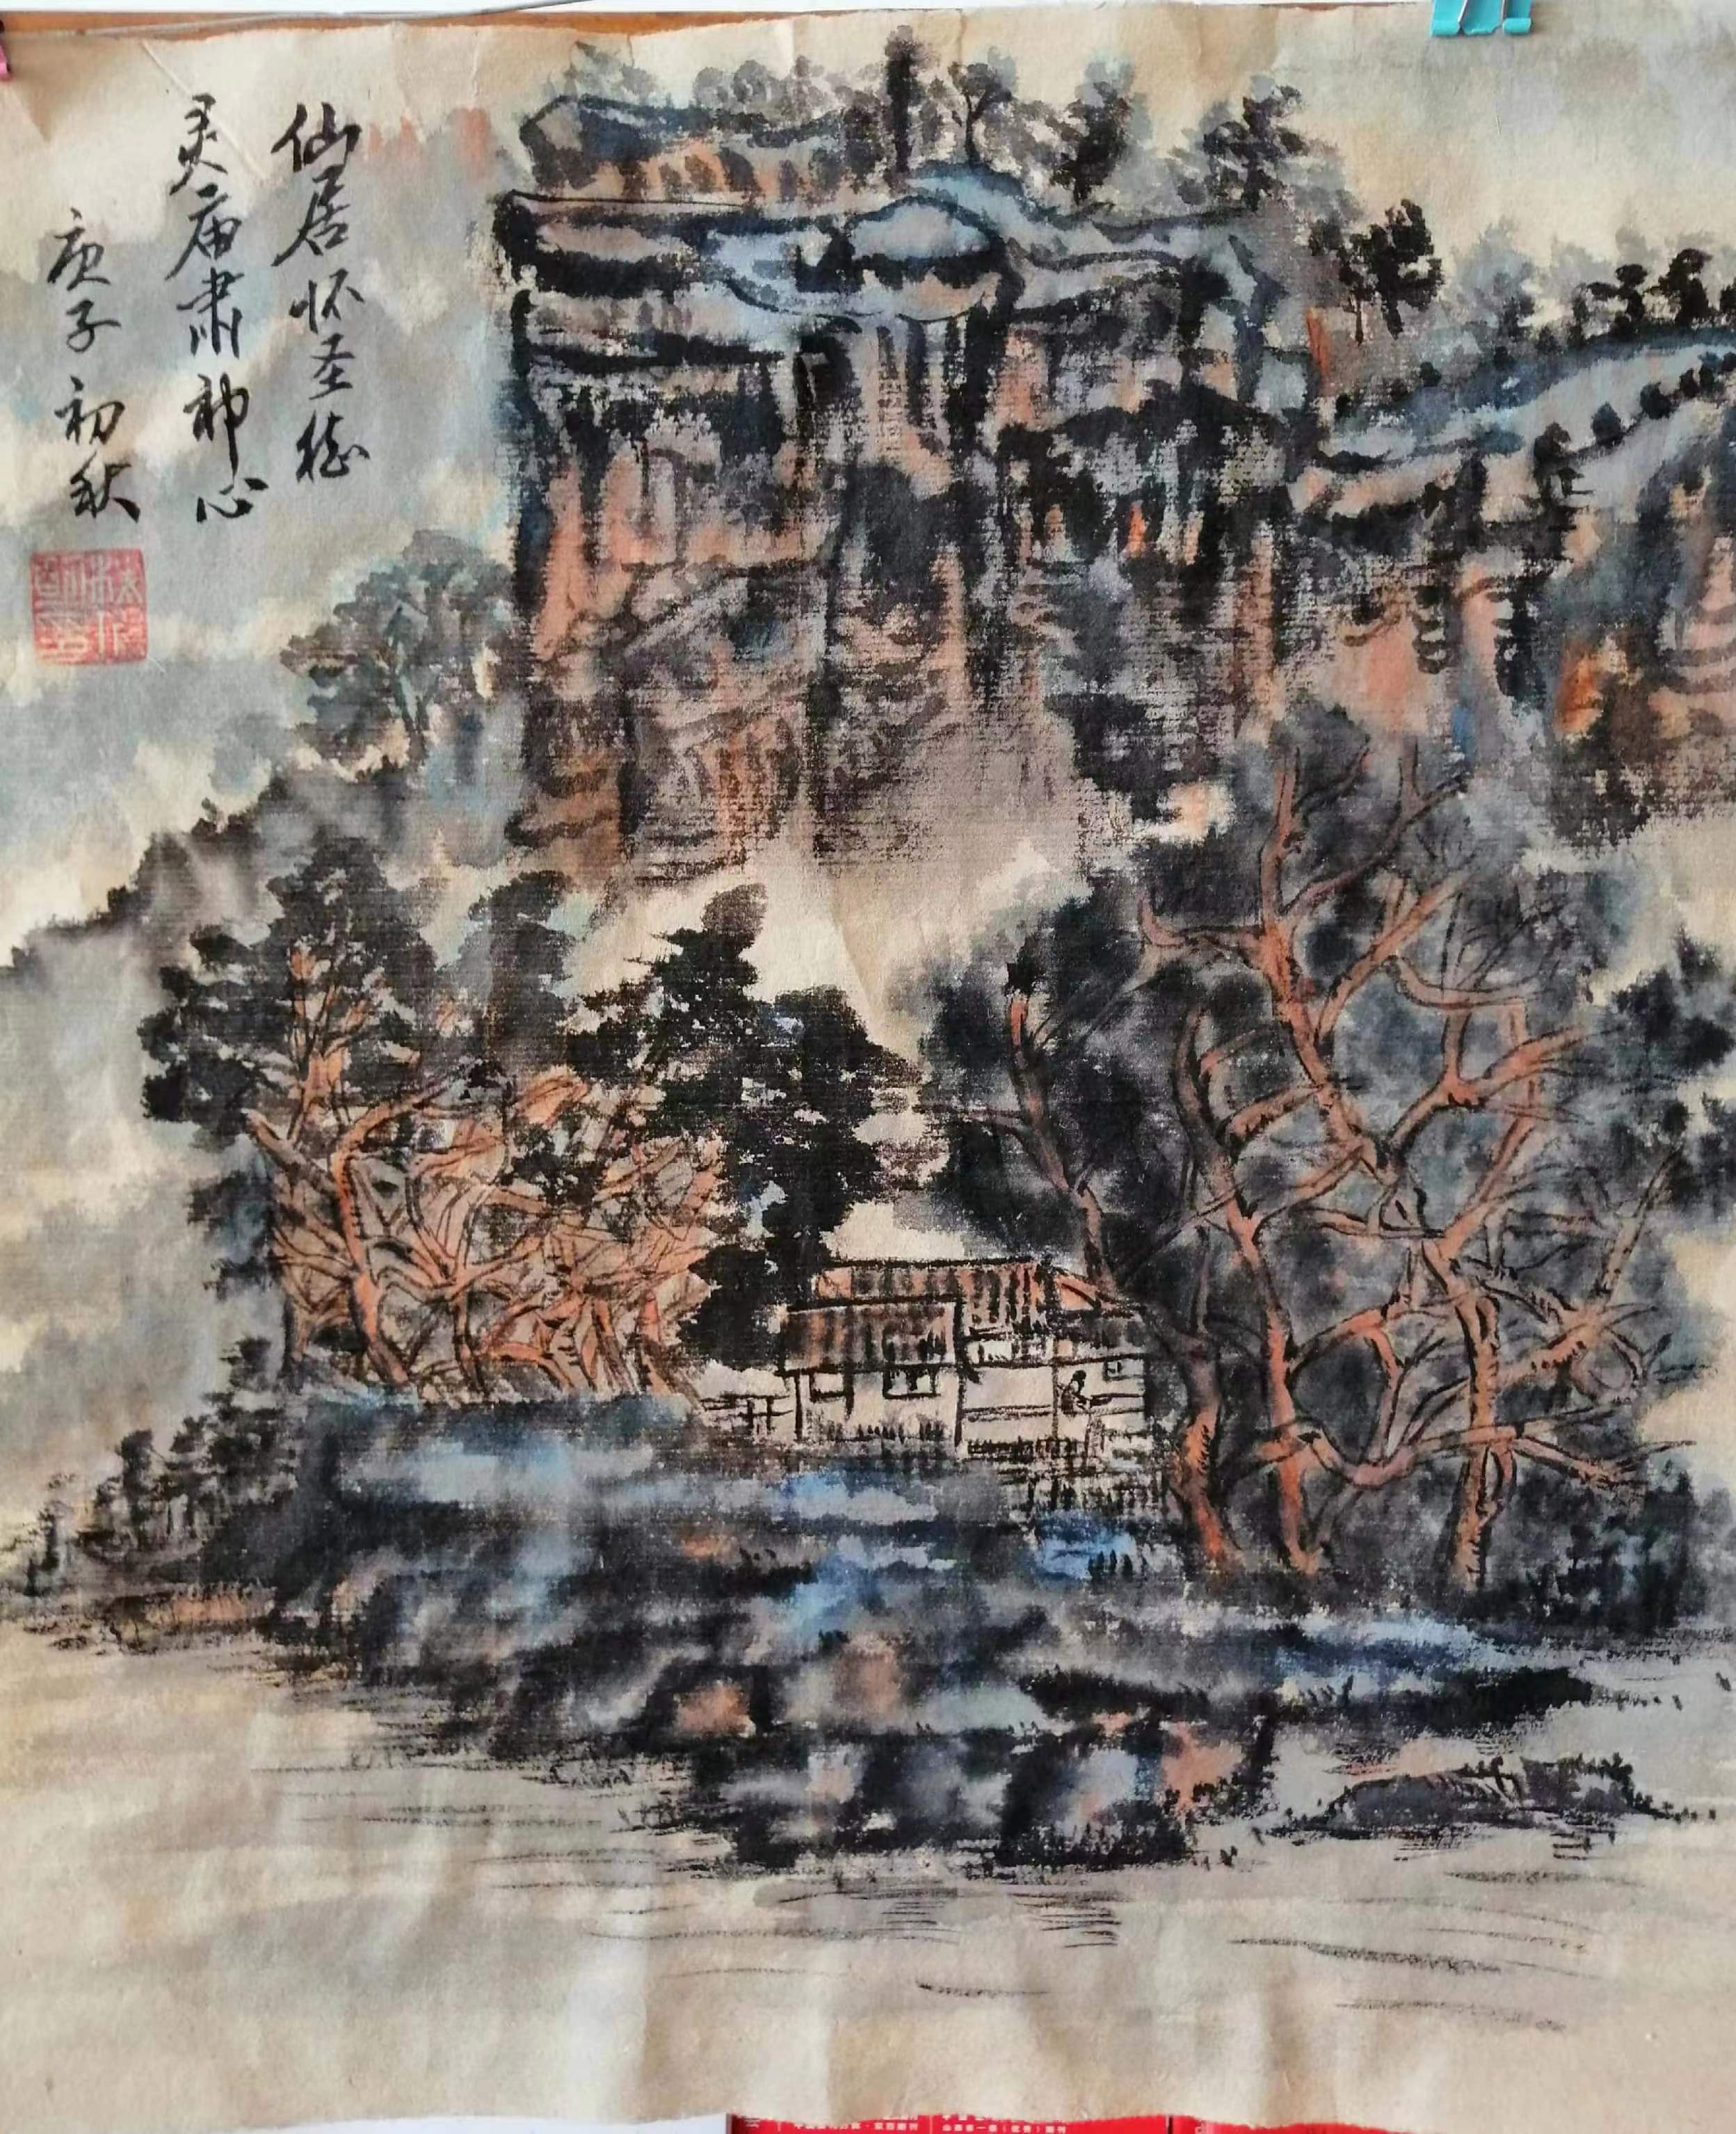 仙居怀圣德
灵庙肃神心
庚子初秋